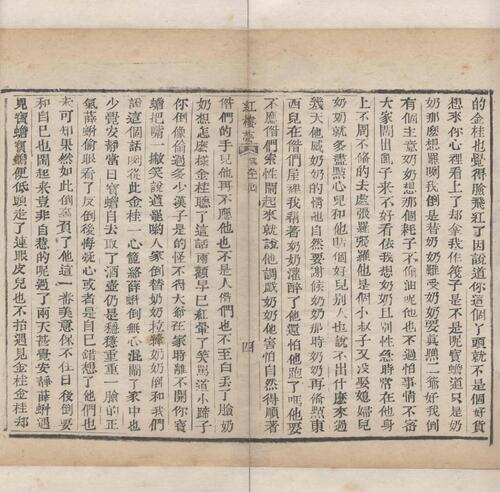 的金桂也覺得臉飛紅了因說道你這個丫頭就不是個好貨
想來你心裡看上了却拿我作筏子是不是呢寶蟾道只是奶
奶那麽想罷咧我倒是替奶奶難受奶奶要真瞧二爺好我倒
有個主意奶奶想那個耗子不偷油呢他也不過怕事情不密
大家鬧出亂子來不好看依我想奶奶且別性急時常在他身
上不周不備的去處張羅張羅他是個小叔子又沒娶媳婦兒
奶奶就多盡點心兒和他貼個好兒別人也說不出什麽來過
幾天他感奶奶的情他自然要謝候奶奶那時奶奶再備點東
西兒在偺們屋裡我幫着奶奶灌醉了他還怕他跑了嗎他要
不應偺們索性鬧起來就說他調戲奶奶他害怕自然得順著
紅樓夢
四
偺們的手兒他再不應他也不是人偺們也不至白丟了臉奶
奶想怎麽樣金桂聽了這話兩顴早已紅暈了笑罵道小蹄子
你倒像偷過多少漢子是的怪不得大爺在家時離不開你寶
蟾把嘴一撇笑說道罷喲人家倒替奶奶拉縴奶奶倒和我們
說這個話咧從此金桂一心籠絡薛蝌倒無心混鬧了家中也
少覺安靜當日寶蟾自去取了酒壺仍是穩穩重重一臉的正
氣薛蝌偷眼看了反倒後悔疑心或者是自已錯想了他們也
未可知果然如此倒辜負了他這一番美意保不住日後倒要
和自已也鬧起來豈非自惹的呢過了兩天甚覺安靜薛蝌遇
見寶蟾寶蟾便低頭走了連眼皮兒也不抬遇見金桂金桂却